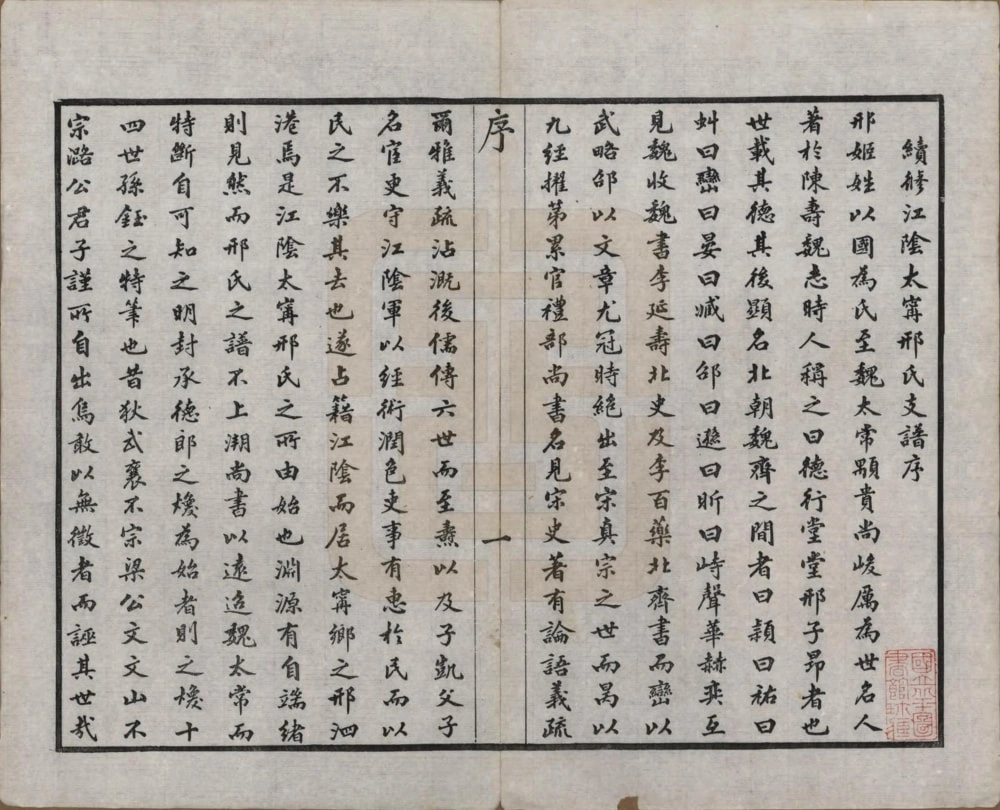 續修江陰太甯邢氏支譜序
邢姬姓以國為氏至魏太常顒貴尚峻厲為世名人
著於陳壽魏志時人稱之曰德行堂堂邢子昂者也
世載其德其後顯名北朝魏齊之間者曰穎曰祐曰
虯曰巒曰晏曰臧曰邵曰遜曰昕曰峙聲華赫奕互
見魏收魏書李延壽北史及李百藥北齊書而巒以
武略邵以文章尤冠時絶出至宋真宗之世而昺以
九經擢第累官禮部尚書名見宋史著有論語義疏
序
一
爾雅義疏沾溉後儒傳六世而至燾以及子凱父子
名宦吏守江陰軍以經術潤色吏事有惠於民而以
民之不樂其去也遂占籍江陰而居太甯鄉之邢泗
港焉是江陰太甯邢氏之所由始也淵源有自端緒
則見然而邢氏之譜不上溯尚書以遠迢魏太常而
特斷自可知之明封承德郎之㷟為始者則之㷟十
四世孫鈺之特筆也昔狄武襄不宗梁公文文山不
宗潞公君子謹所自出烏敢以無徵者而誣其世哉
國立北平圖書館珍藏